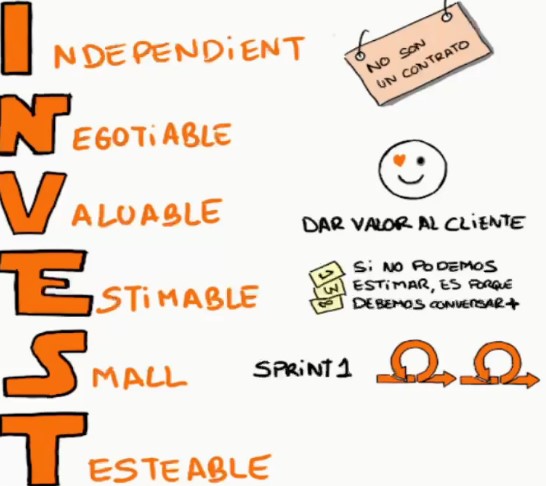 INDEPENDIENT
NO SON
UN CONTRATO
NEGOTIABLE
VALUABLE
DAR VALOR AL CLIENTE
ESTIMABLE
SI NO PODEMOS
ESTIMAR, ES PORQUE
DEBEMOS CONVERSAR+
SMALL
SPRINT 1
TESTEABLE